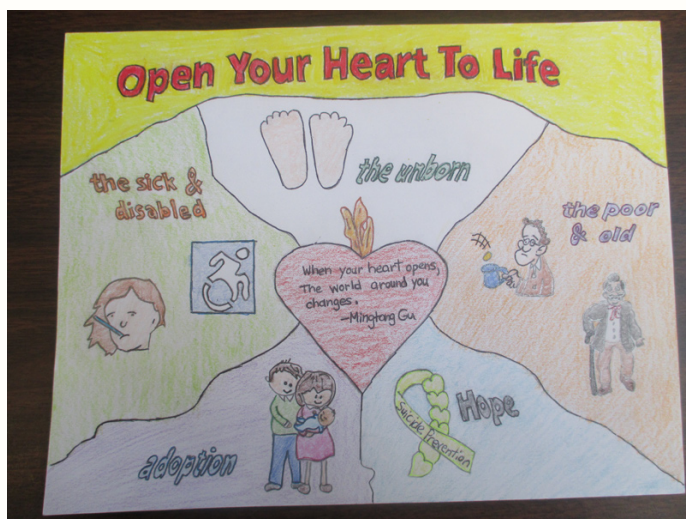 Open Your Heart To Life
the unborn
the sick &
disabled
the poor
& old
When your heart opens,
the world around you
changes.
-Mingtong Gu
adoption
Hope
Suicide Prevention